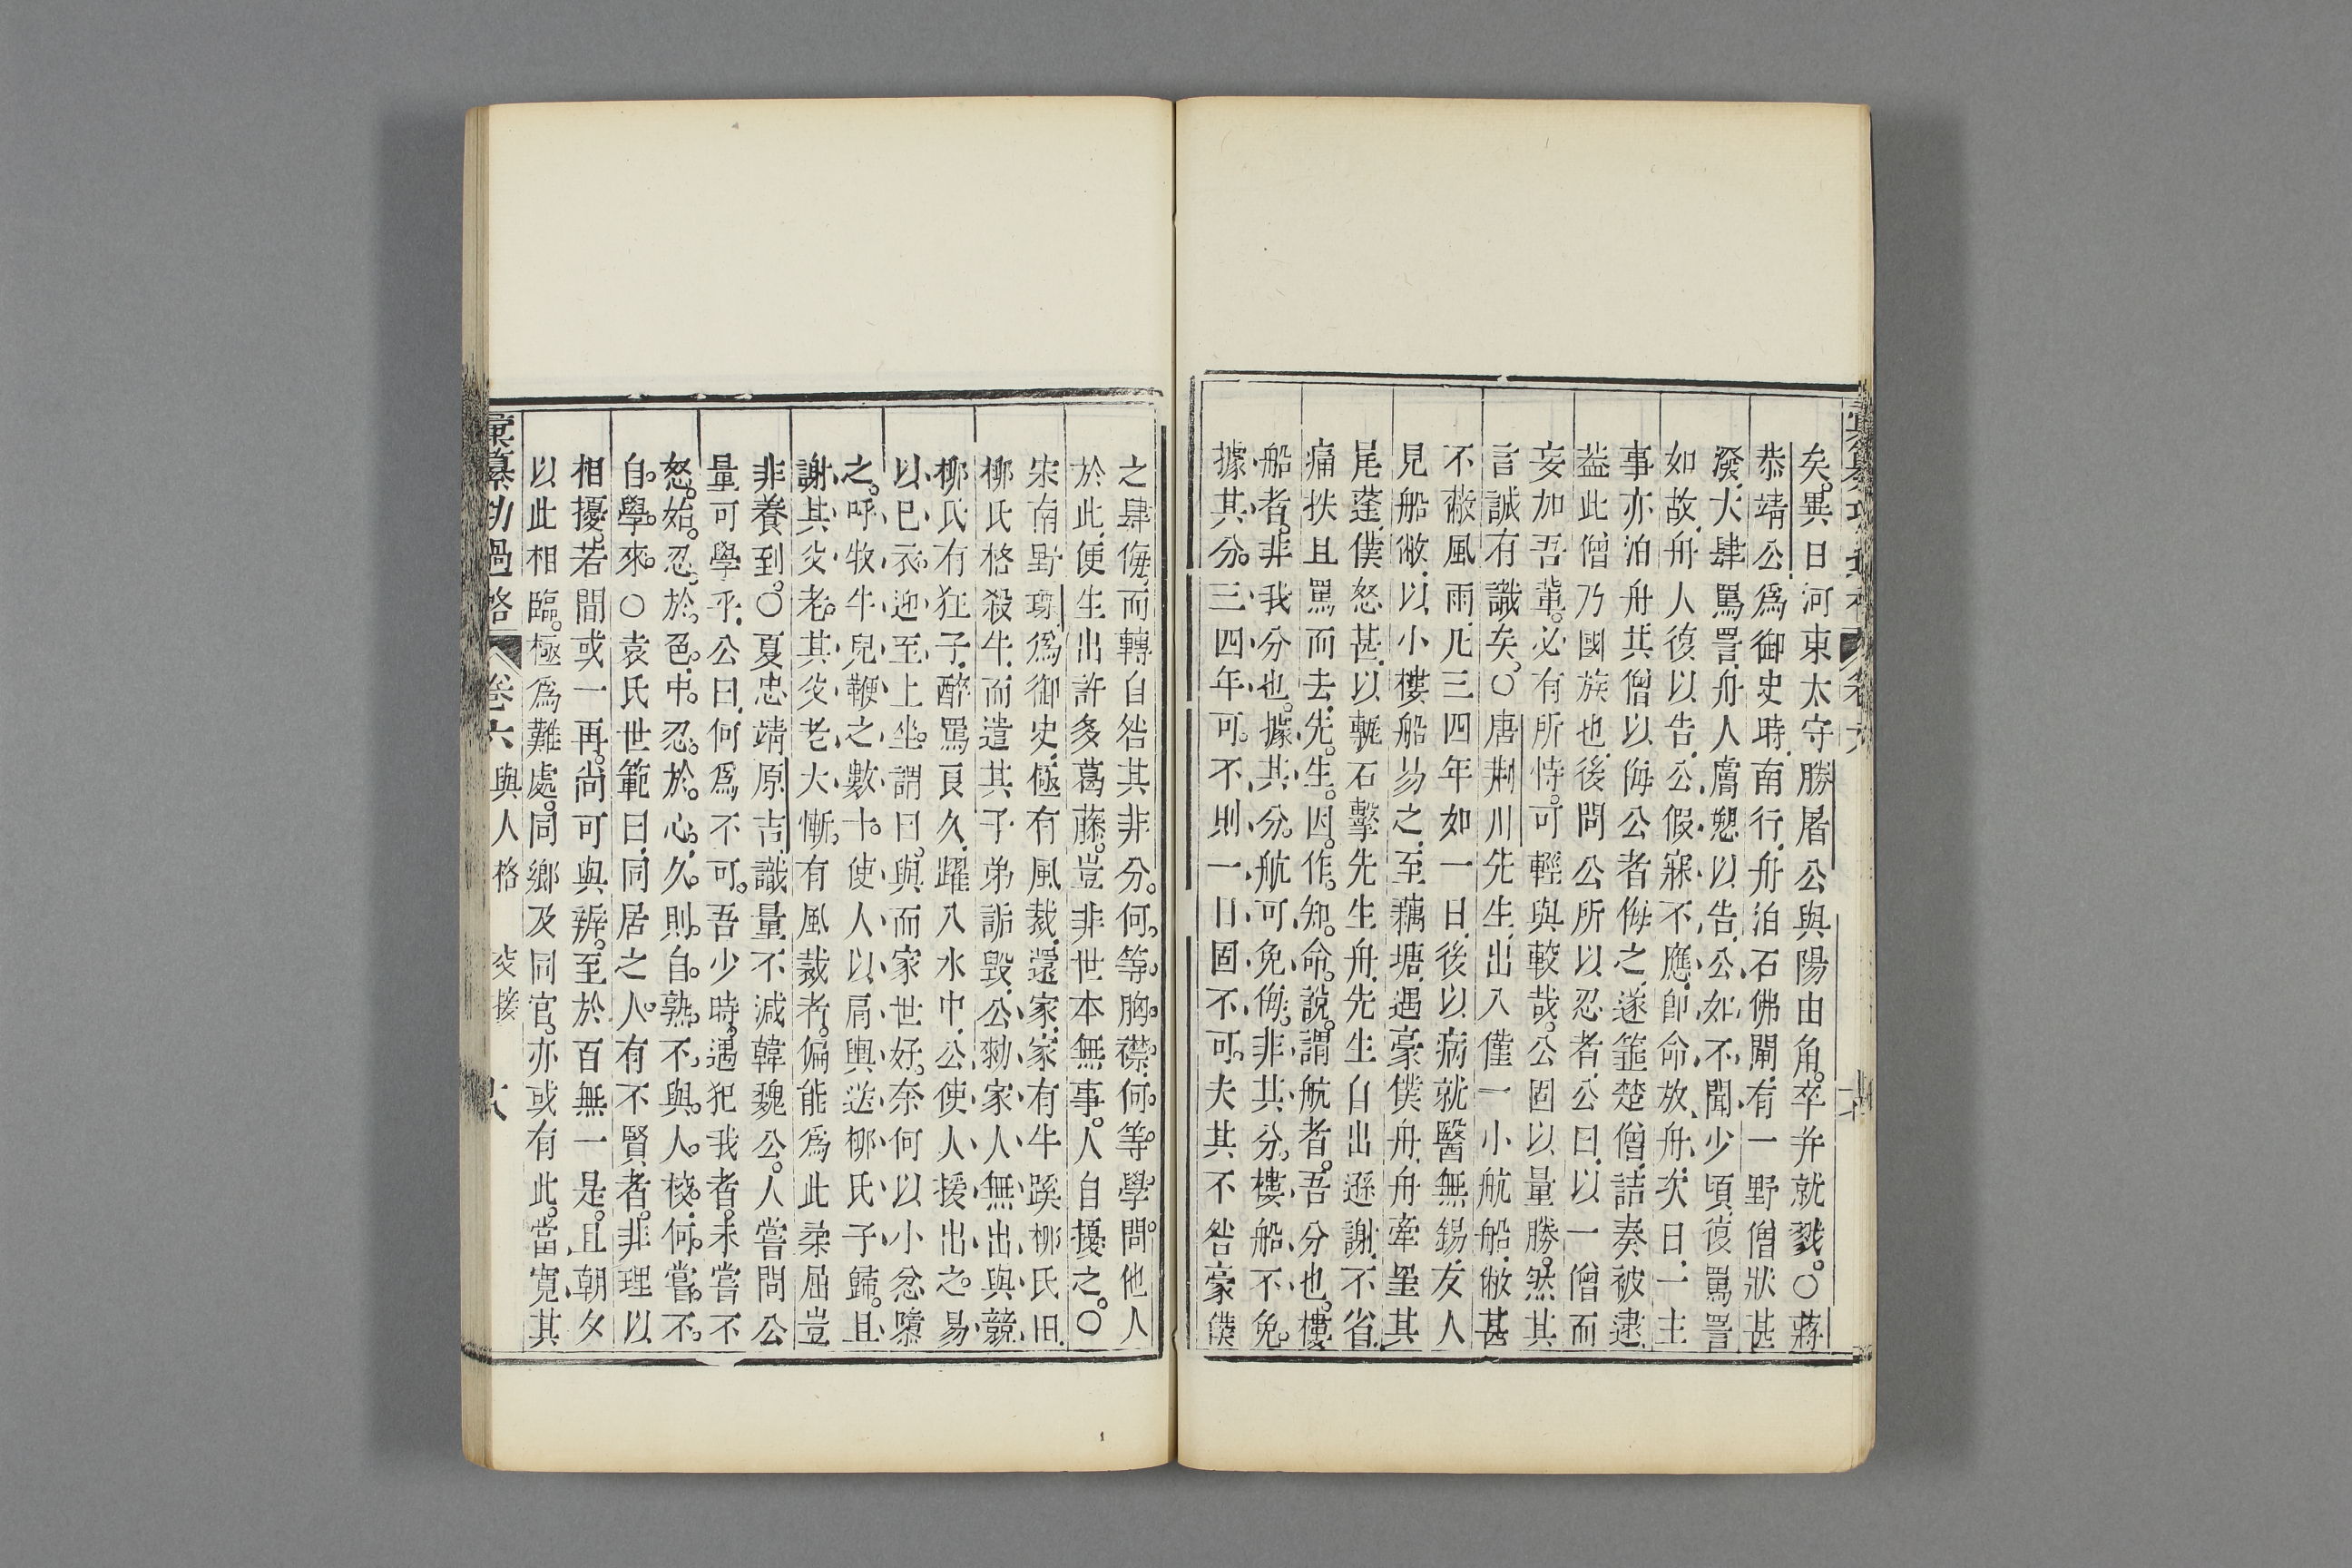 矣。異日河東太守勝屠公與陽由角。卒并就戮。○蔣
恭靖公爲御史時南行舟泊石佛閘有一野僧狀甚
潑大肆罵詈舟人膚愬以告公如不聞少頃復罵詈
如故舟人復以告公假寐不應卽命放舟次日一主
事亦泊舟其僧以侮公者侮之遂箠楚僧詰奏被逮
葢此僧乃國族也後問公所以忍者公曰以一僧而
妄加吾輩。必有所恃。可輕與較哉。公固以量勝。然其
言誠有識矣。○唐荆川先生出入僅一小航船敝甚
不蔽風雨几三四年如一日後以病就醫無錫友人
見船敝以小樓船易之至藕塘遇豪僕舟舟牽罣其
尾蓬僕怒甚以甎石擊先生舟先生自出遜謝不省
痛抶且罵而去先。生。因。作。知。命。說。謂航者。吾分也。樓
船者。非我分也。據其分。航可免侮。非其分。樓船不免。
據其分。三四年可。不則一日固不可。夫其不咎豪僕
之肆侮而轉自咎其非分。何。等。胸。襟。何。等。學。問。他人
於此便生出許多葛藤。豈非世本無事。人自擾之。○
宋南野瓊爲御史極有風裁還家家有牛蹊柳氏田
柳氏格殺牛而遣其子弟詬毁公勑家人無出與競
柳氏有狂子醉罵良久躍入水中公使人援出之。易
以巳衣迎至上坐。謂曰。與而家世好。奈何以小忿隳
之。呼牧牛兒鞭之數十。使人以肩輿送柳氏子歸。且
謝其父老。其父老大慚。有風裁者。偏能爲此柔屈豈
非養到。○夏忠靖原吉識量不減韓魏公。人嘗問公
量可學乎公曰何爲不可。吾少時。遇犯我者。未嘗不
怒。始。忍。於。色。中。忍。於。心。久。則。自。熟。不。與。人。校。何。嘗。不。
自。學。來。○袁氏世範曰同居之人。有不賢者。非理以
相擾。若間或一再。尚可與辨。至於百無一是。且朝夕
以此相臨。極爲難處。同鄉及同官。亦或有此。當寬其
彙纂功過格 卷六 與人格 交接